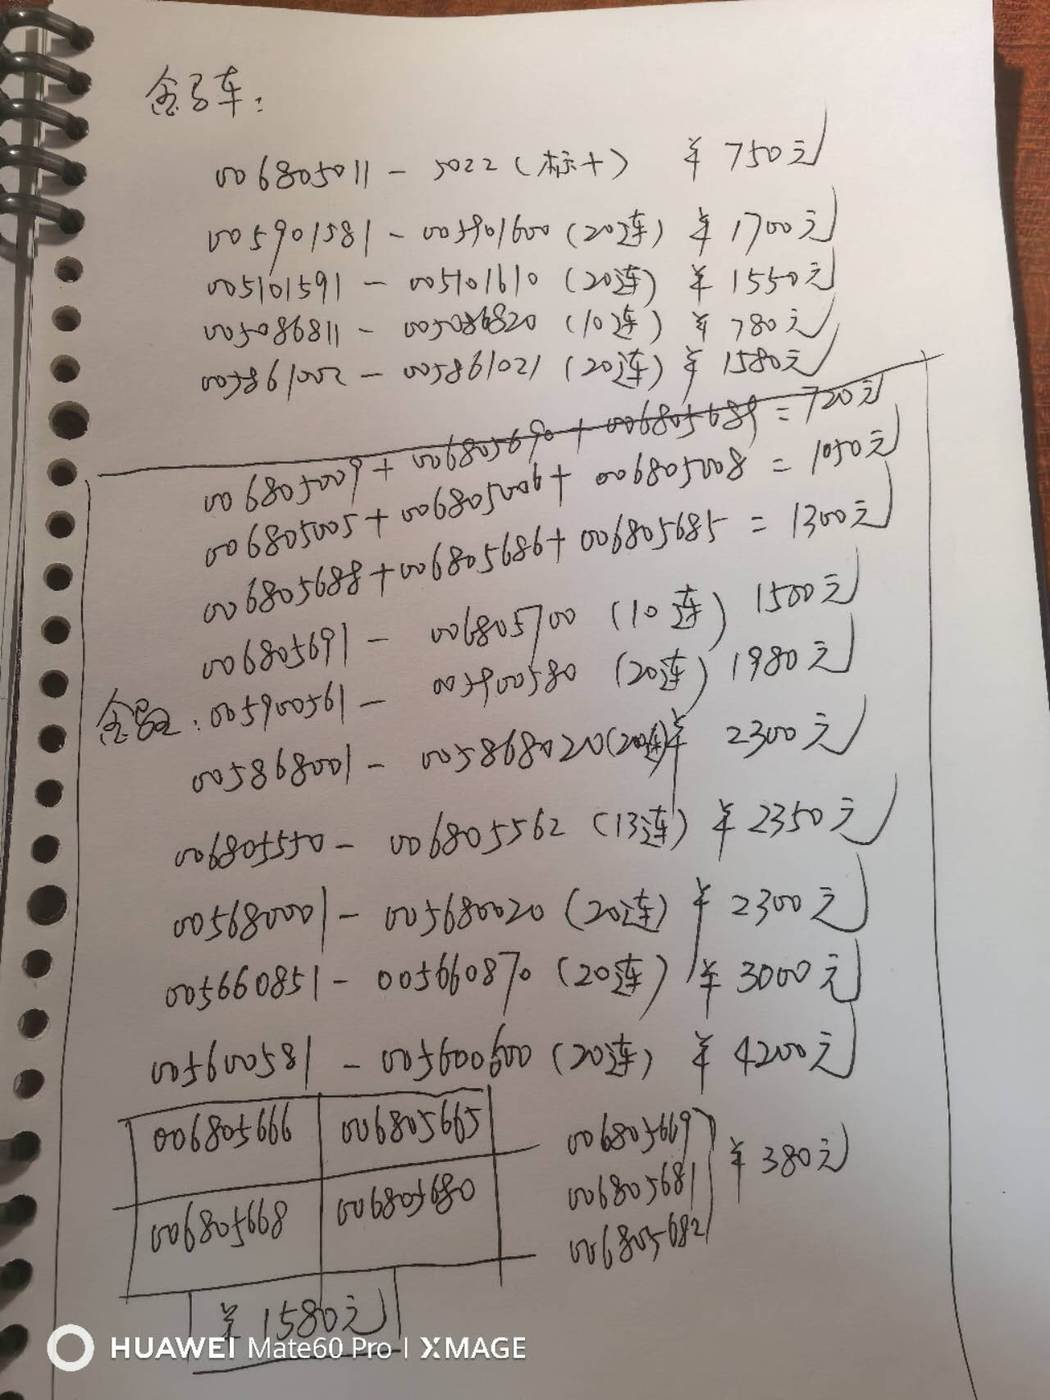 006805011 - 5022 (标十) ¥ 750元
005901581 - 005901600 (20连) ¥ 1700元
005101591 - 005101610 (20连) ¥ 1550元
005086811 - 005086820 (10连) ¥ 780元
005861002 - 005861021 (20连) ¥ 1580元
006805009 + 006805690 + 006805689 = 720元
006805005 + 006805006 + 006805008 = 1050元
006805688 + 006805686 + 006805685 = 1300元
006805691 - 006805700 (10连) 1500元
005900561 - 005900580 (20连) 1980元
005868001 - 005868020 (20连) ¥ 2300元
006805550 - 006805562 (13连) ¥ 2350元
005680001 - 005680020 (20连) ¥ 2300元
005660851 - 005660870 (20连) ¥ 3000元
005600581 - 005600600 (20连) ¥ 4200元
006805666 006805665
006805668 006805680
¥ 1580元
006805669
006805681
006805682
¥ 380元
HUAWEI Mate60 Pro | XMAGE